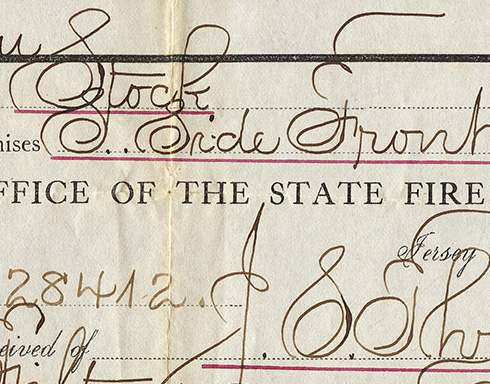 Stock
mises S. Side Front
FFICE OF THE STATE FIRE
Jersey
28412.
J. S. Tho
eived of